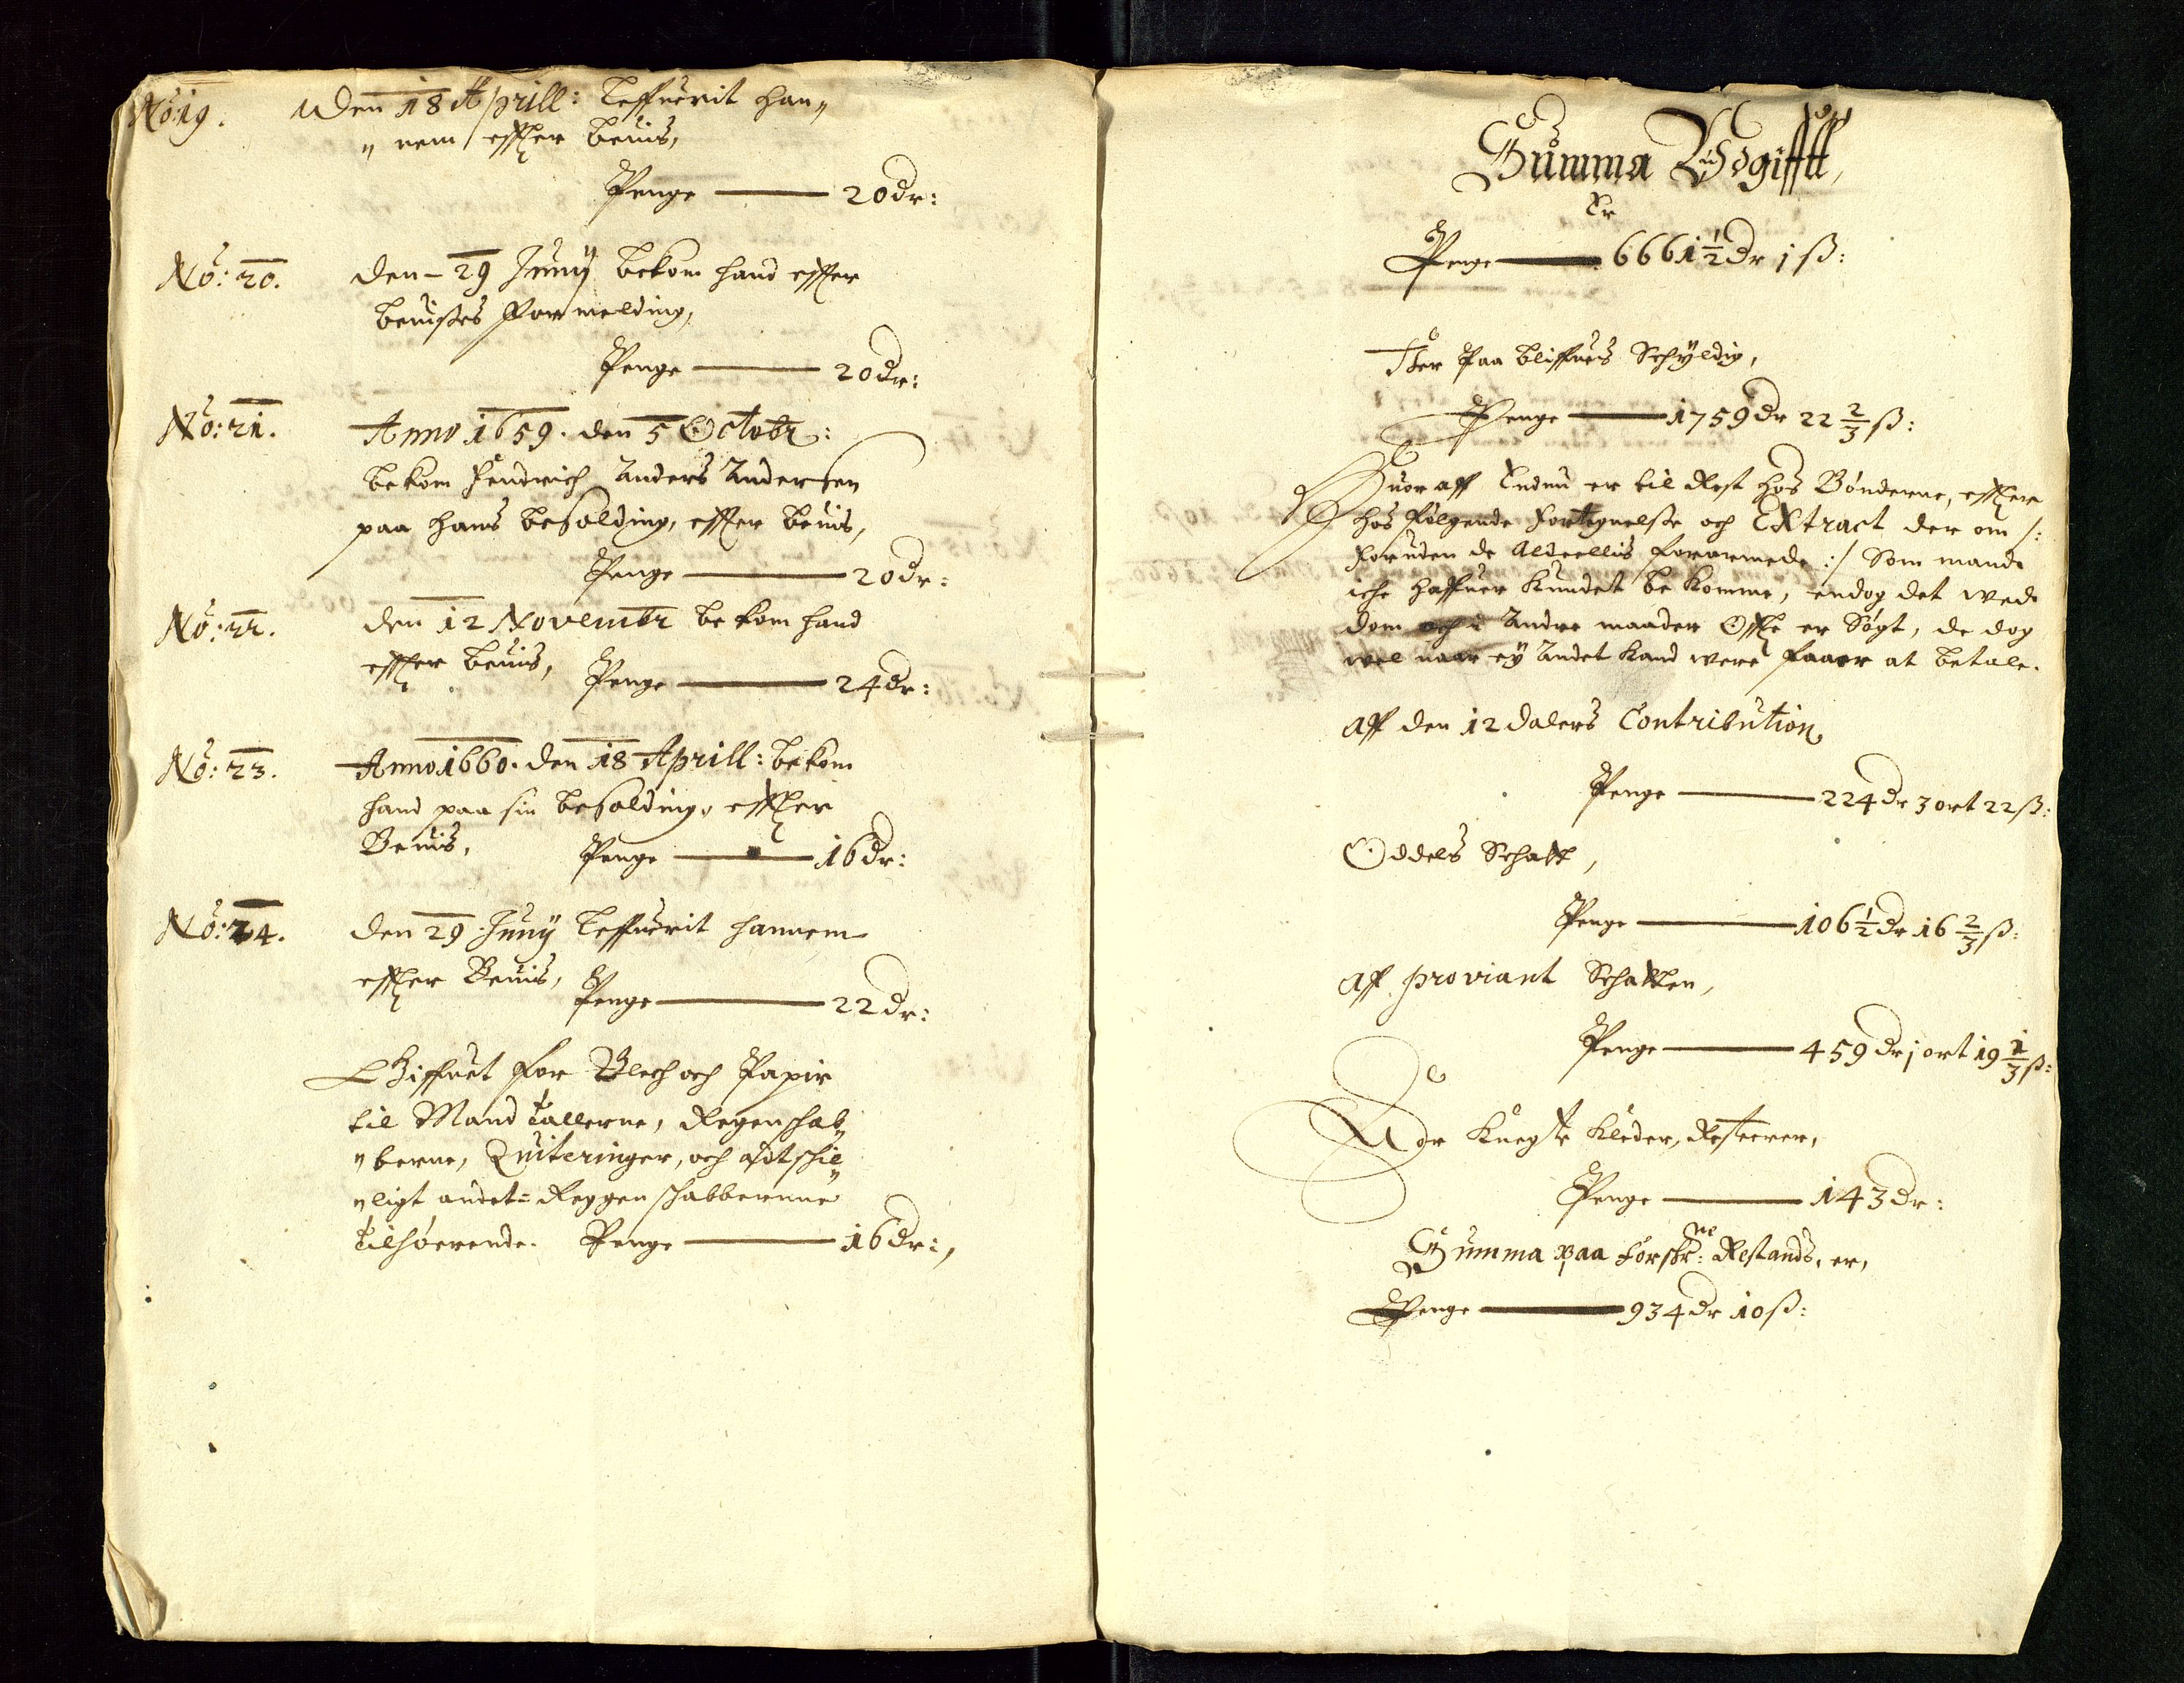 No: 19. Den 18 Aprill: Leffuerit han„
„nem effter beuis,
Penge — 20 dr:
No: 20. Den - 29 Junij bekom hand effter
beuisses formelding,
Penge — 20 dr:
No: 21. Anno 1659. den 5 Octobr:
bekom Fendrich Anders Andersen
paa hans besolding, effter beuis,
Penge — 20 dr:
No: 22. den 12 Novembr bekom hand
effter beuis, Penge — 24 dr:
No: 23. Anno 1660. den 18 Aprill: bekom
hand paa sin besolding, effter
Beuis, Penge — 16 dr:
No: 24. den 29 Junij Leffuerit hannem
effter Beuis, Penge — 22 dr:
Giffuet for Blech och Papir
til Mand tallerne, Regenschab„
„berne, Quiteringer, och Adtschil„
„ligt andet = Reggenschabberune
tilhøerende. Penge — 16 dr:,
Summa Udgifftt,
Er
Penge — 6661 1/2 dr 1 ß:
Der Paa bliffues Schÿldig,
Penge — 1759 dr 22 2/3 ß:
Huor aff Endnu er til Rest hos Bønderne, effter
hos følgende fortegnelse och Extract der om /:
foruden de Aldeellis forarmede :/ Som mand
iche haffuer kundet bekomme, endog det wed
dom och i Andre maader Offte er Søgt, de dog
wel naar eÿ Andet kand were faaer at betale.
Aff den 12 dalers Contribution
Penge — 224 dr 3 ort 22 ß:
Oddels Schatt,
Penge — 106 1/2 dr 16 2/3 ß:
Aff proviant Schatten,
Penge — 459 dr 1 ort 19 1/3 ß:
For Knegte Kleder, Resteerer,
Penge — 143 dr:
Summa paa forskr:ne Restands, er,
Penge — 934 dr 10 ß: